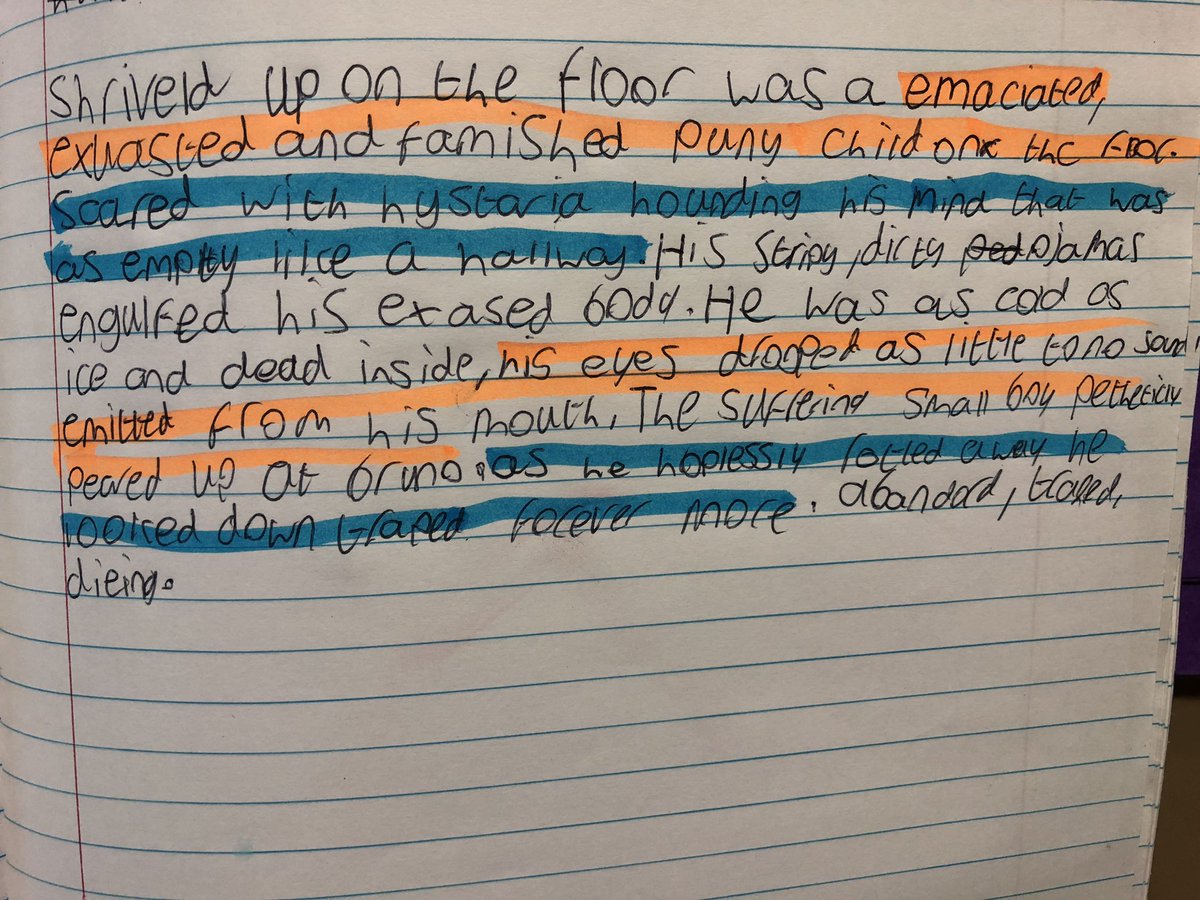 Shriveld up on the floor was a emaciated,
exhasted and famished puny child on the floor.
Scared with hystaria hounding his mind that was
as empty like a hallway. His stripy, dirty pojamas
engulfed his erased body. He was as cold as
ice and dead inside, his eyes drooped as little to no sound
emitted from his mouth. The suffering small boy petheticly
peared up at bruno. as he hoplessly rotted away he
looked down traped forever more. abandard, traped,
dieing.